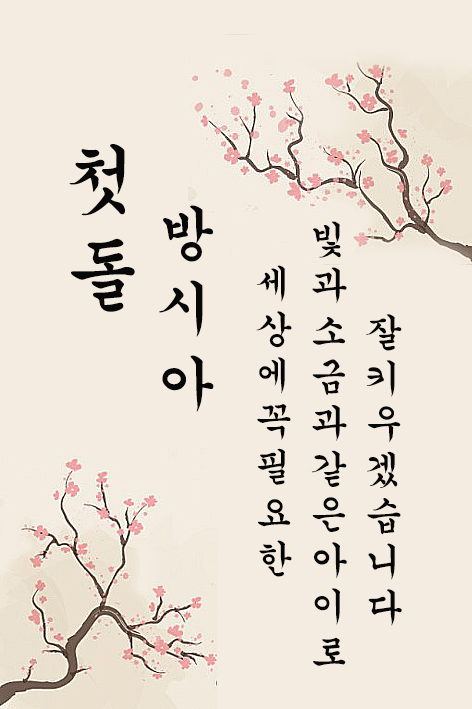 첫돌
방시아
세상에꼭필요한
빛과소금과같은아이로
잘키우겠습니다